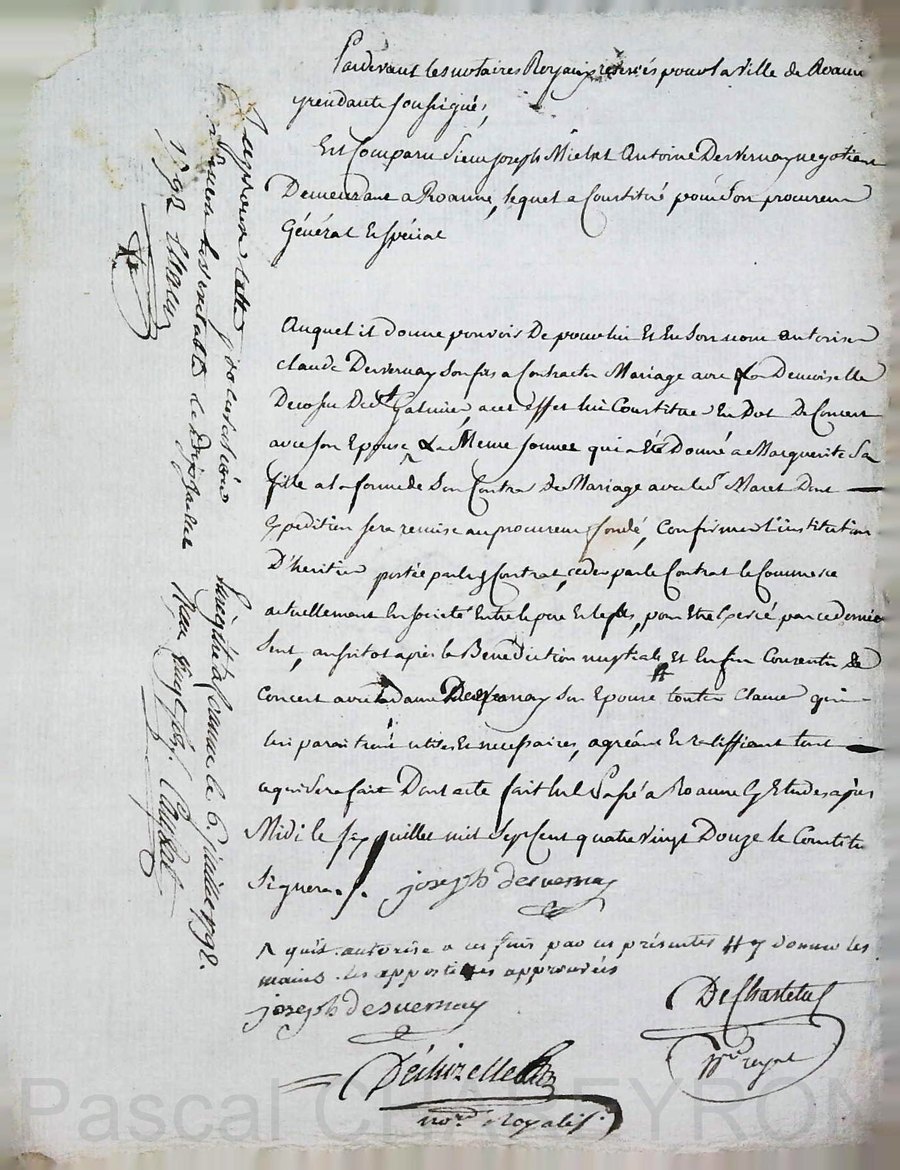 Pardevant les notaires Royaux reservés pour la Ville de Roanne
y residants soussignés,
Est Comparu Sieur joseph Michel Antoine Desvernay negotiant
Demeurant a Roanne, lequel a Constitué pour Son procureur
Général Et spécial
Auquel il donne pouvoir De pour lui Et En Son nom autoriser
claude Desvernay Son fils a Contracter Mariage avec Demoiselle
a cet effet lui Constituer En Dot De Concert
avec Son Epouse La Meme somme qui a été Donné a Marguerite Sa
fille a la forme de Son Contrat De Mariage avec le Sr Maret Dont
Expedition Sera remise au procureur fondé, Confirmer l'institution
D'heritier portée par led Contrat, ceder par le Contrat le Commerce
actuellement En société Entre le pere Et le fils, pour Etre Exercé par ce dernier
Seul, aussitot après la Bénédiction nuptiale # Et Enfin Consentir De
Concert avec la dame Desvernay Son Epouse toutes Clauses qui
lui paraitront utiles Et necessaires, agréant Et ratiffiant tout
ce qui Sera fait Dont acte fait lu Et Passé a Roanne Es Etudes après
Midi le Six juillet mil Sept Cent quatre Vingt Douze le Constitu
Signera ./. joseph desvernay
^ qu'il autorise a ces fins par ces présentes # y donner les
mains. les apostilles approuvées
joseph desvernay
DeChastelus
nre royal
Déchizelle
nore Royal
J'approuve cette procuration
1792
Enregistré a Roanne le 6. juillet 1792.
Reçu vingt sols.
Pascal CHAREYRON